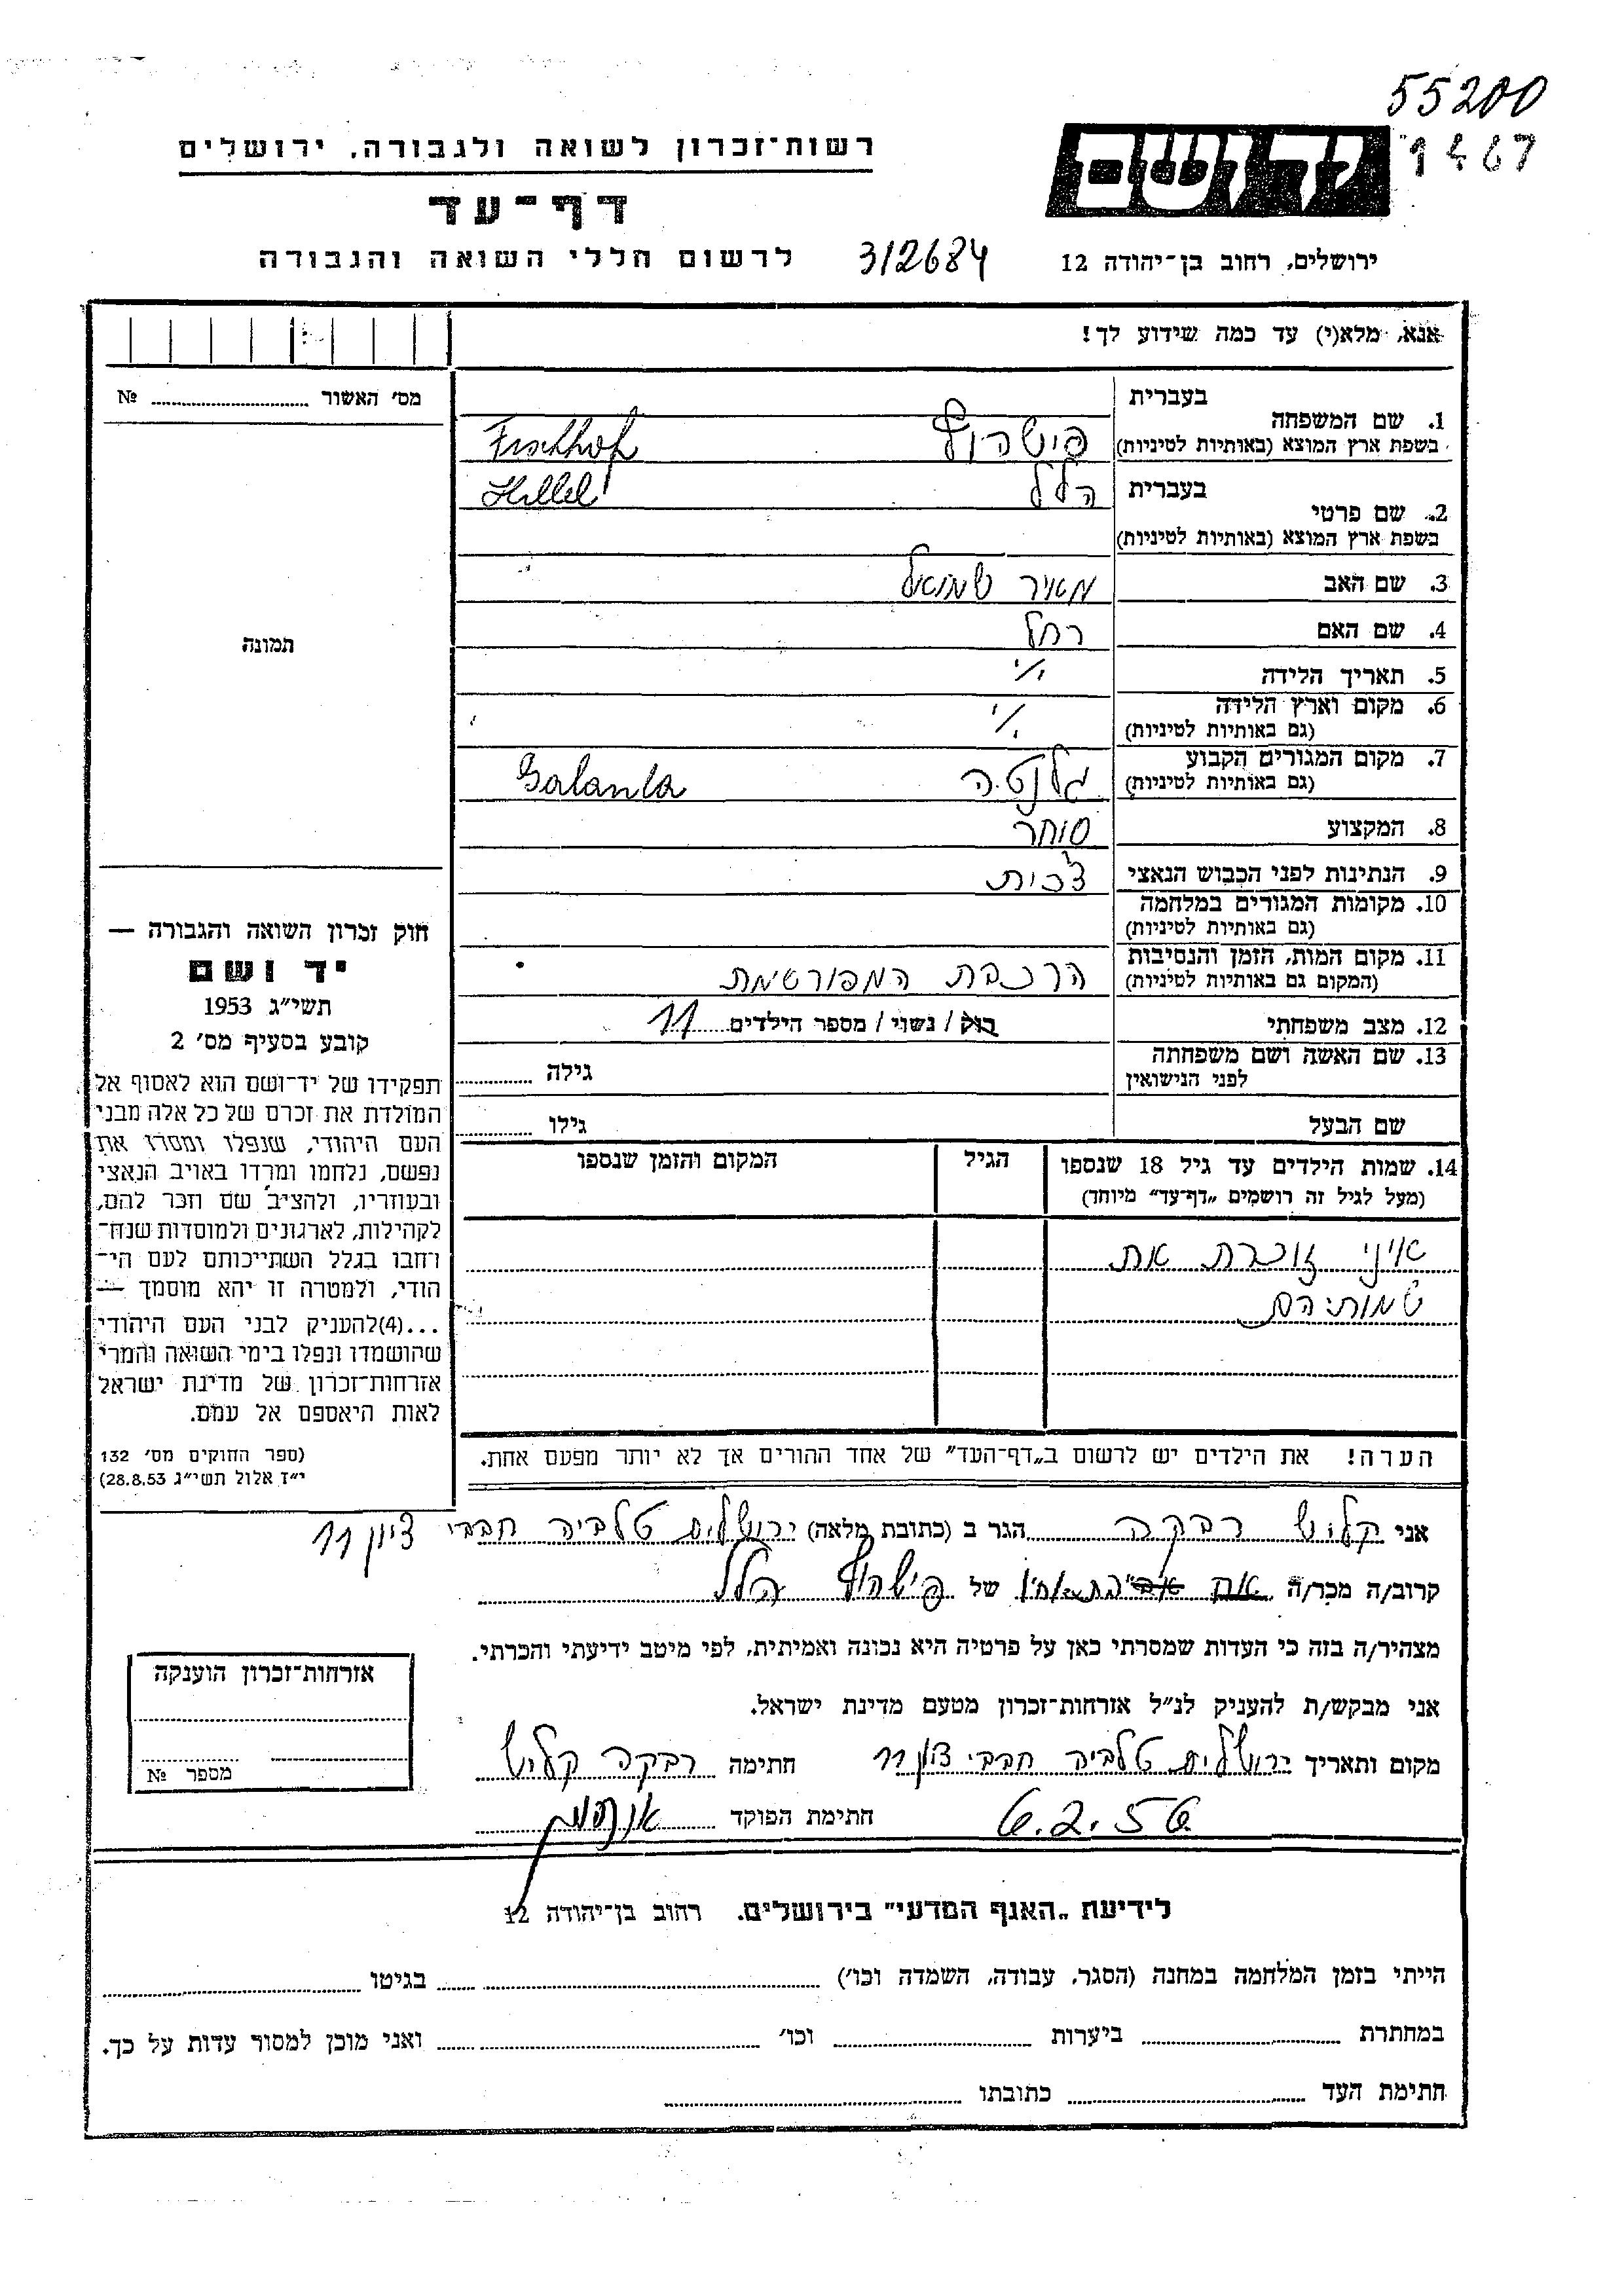 55200
1467
רשות־זכרון לשואה ולגבורה, ירושלים
יד ושם
דף־עד
ירושלים, רחוב בן־יהודה 12
312684
לרשום חללי השואה והגבורה
אנא, מלא(י) עד כמה שידוע לך!
מס׳ האשור № 
בעברית
1. שם המשפחה
בשפת ארץ המוצא (באותיות לטיניות)
פישהוף Fischhof
בעברית
הלל Hillel
2. שם פרטי
בשפת ארץ המוצא (באותיות לטיניות)
3. שם האב מאיר שמואל
4. שם האם רחל
תמונה
5. תאריך הלידה
6. מקום וארץ הלידה
(גם באותיות לטיניות)
7. מקום המגורים הקבוע
(גם באותיות לטיניות)
גלנטה Galanta
8. המקצוע סוחר
9. הנתינות לפני הכבוש הנאצי צ׳כית
10. מקומות המגורים במלחמה
(גם באותיות לטיניות)
11. מקום המות, הזמן והנסיבות
(המקום גם באותיות לטיניות)
הרכבת המפורסמת
12. מצב משפחתי רוק / נשוי / מספר הילדים 11
13. שם האשה ושם משפחתה
לפני הנישואין
גילה
שם הבעל גילו
14. שמות הילדים עד גיל 18 שנספו
(מעל לגיל זה רושמים „דף־עד״ מיוחד)
הגיל
המקום והזמן שנספו
איני זוכרת את
שמותיהם
הערה! את הילדים יש לרשום ב„דף־העד״ של אחד ההורים אך לא יותר מפעם אחת.
חוק זכרון השואה והגבורה —
יד ושם
תשי״ג 1953
קובע בסעיף מס׳ 2
תפקידו של יד־ושם הוא לאסוף אל
המולדת את זכרם של כל אלה מבני
העם היהודי, שנפלו ומסרו את
נפשם, נלחמו ומרדו באויב הנאצי
ובעוזריו, ולהציב שם וזכר להם,
לקהילות, לארגונים ולמוסדות שנח־
רחבו בגלל השתייכותם לעם הי־
הודי, ולמטרה זו יהא מוסמך —
...(4) להעניק לבני העם היהודי
שהושמדו ונפלו בימי השואה והמרי
אזרחות־זכרון של מדינת ישראל
לאות היאספם אל עמם.
(ספר החוקים מס׳ 132
י״ז אלול תשי״ג 28.8.53)
אני קליש רבקה הגר ב (כתובת מלאה) ירושלים טלביה חבבי ציון 11
קרוב/ה מכר/ה של פישהוף הלל
מצהיר/ה בזה כי העדות שמסרתי כאן על פרטיה היא נכונה ואמיתית, לפי מיטב ידיעתי והכרתי.
אני מבקש/ת להעניק לנ״ל אזרחות־זכרון מטעם מדינת ישראל.
מקום ותאריך ירושלים טלביה חבבי ציון 11 חתימה רבקה קליש
6.2.56 חתימת הפוקד
אזרחות־זכרון הוענקה
מספר №
לידיעת „האגף המדעי״ בירושלים. רחוב בן־יהודה 12
הייתי בזמן המלחמה במחנה (הסגר, עבודה, השמדה וכו׳) בגיטו
במחתרת ביערות וכו׳ ואני מוכן למסור עדות על כך.
חתימת העד כתובתו